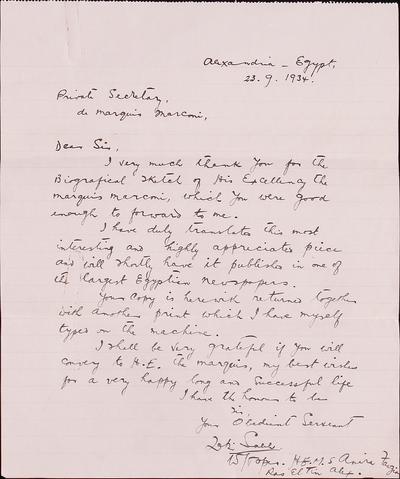 Alexandria - Egypt,
23.9.1934.
Private Secretary,
de Marquis Marconi,
Dear Sir,
I very much thank you for the
Biografical Sketch of His Excellency the
Marquis Marconi, which you were good
enough to forward to me.
I have duly translated this most
interesting and highly appreciated piece
and will shortly have it published in one of
the largest Egyptian newspapers.
Your copy is herewith returned together
with another print which I have myself
typed on the machine.
I shall be very grateful if you will
convey to H.E. the Marquis, my best wishes
for a very happy long and successful life
I have the honour to be
Sir
Your Obedient Servant
H.E.M.S
Ras El Tin Alex.